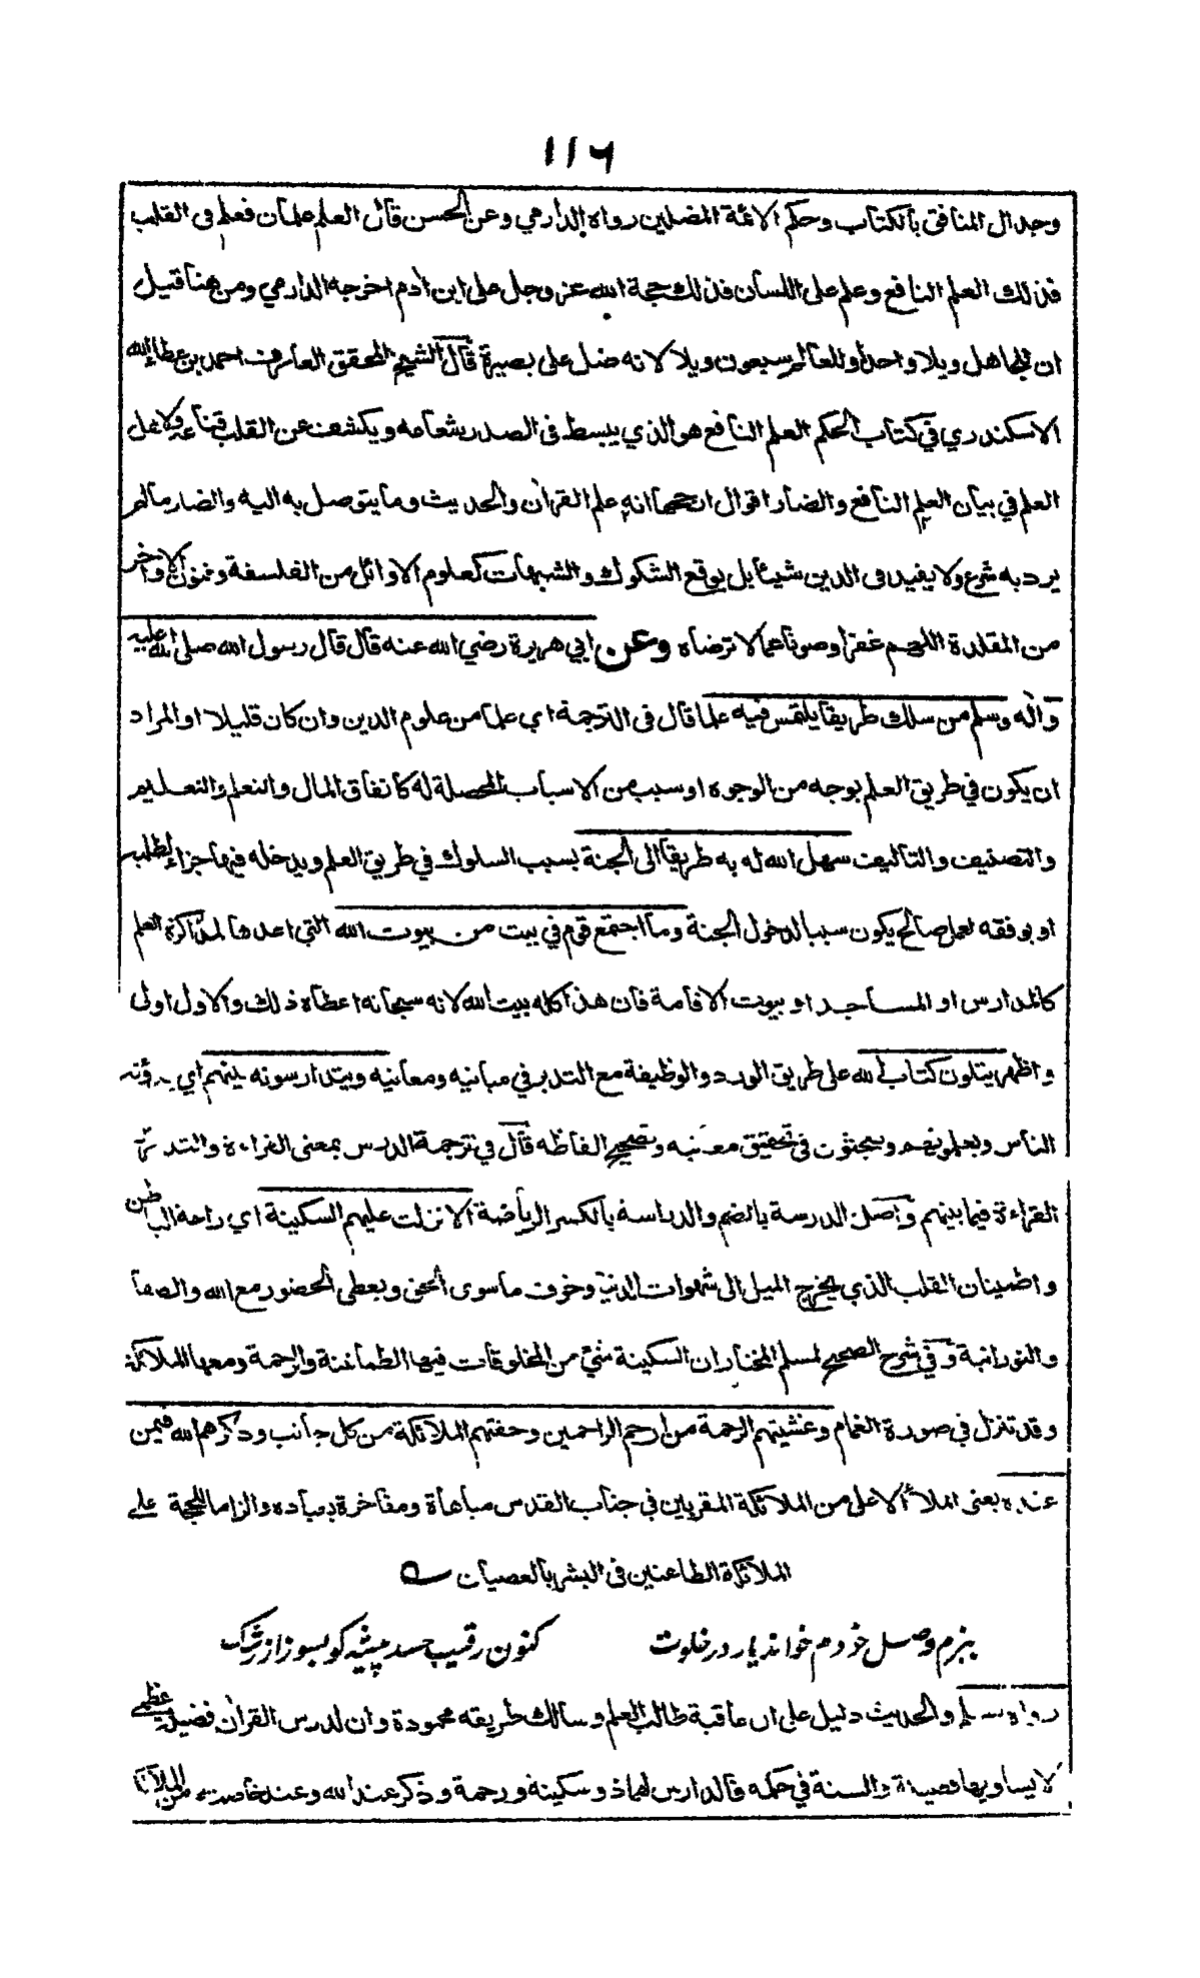 ١١٦
وجدال المنافق بالكتاب وحكم الائمة المضلين رواه الدارمي وعن الحسن قال العلم علمان فعلم فى القلب
فذلك العلم النافع وعلم على اللسان فذلك حجة الله عز وجل على ابن آدم اخرجه الدارمي ومن هنا قيل
ان للجاهل ويلا واحدا وللعالم سبعون ويلا لانه ضل على بصيرة قال الشيخ المحقق العارف احمد بن عطاء الله
الاسكندري في كتاب الحكم العلم النافع هو الذي يبسط فى الصدر شعاعه ويكشف عن القلب قناعه ولاهل
العلم في بيان العلم النافع والضار اقوال ارجحها انه علم القرآن والحديث وما يتوصل به اليه والضار مالم
يرد به شرع ولا يفيد فى الدين شيئا بل يوقع الشكوك والشبهات كعلوم الاوائل من الفلسفة وفنون الاواخر
من المقلدة اللهم غفرا وصونا عما لا ترضاه وعن ابي هريرة رضي الله عنه قال قال رسول الله صلى الله عليه
وآله وسلم من سلك طريقا يلتمس فيه علما قال فى الترجمة اي علما من علوم الدين وان كان قليلا او المراد
ان يكون في طريق العلم بوجه من الوجوه او سبب من الاسباب المحصلة له كانفاق المال والتعلم والتعليم
والتصنيف والتاليف سهل الله له به طريقا الى الجنة بسبب السلوك في طريق العلم ويدخله فيها جزاء لطلبه
او يوفقه لعمل صالح يكون سببا لدخول الجنة وما اجتمع قوم في بيت من بيوت الله التي اعدها لمذاكرة العلم
كالمدارس او المساجد او بيوت الاقامة فان هذا كله بيت الله لانه سبحانه اعطاه ذلك والاول اولى
واظهر يتلون كتاب الله على طريق الورد والوظيفة مع التدبر في مبانيه ومعانيه ويتدارسونه بينهم اي يقرؤنه
الناس ويعلمونهم ويبحثون في تحقيق معانيه وتصحيح الفاظه قال في ترجمة الدرس بمعنى القراءة والتدارس
القراءة فيما بينهم واصل الدرسة بالضم والدراسة بالكسر الرياضة الا نزلت عليهم السكينة اي راحة الباطن
واطمينان القلب الذي يخرج الميل الى شهوات الدنيا وخوف ما سوى الحق ويعطى الحضور مع الله والصفا
والنورانية وفي شرح الصحيح لمسلم المختار ان السكينة شئ من المخلوقات فيها الطمأنينة والرحمة ومعها الملائكة
وقد تنزل في صورة الغمام وغشيتهم الرحمة من ارحم الراحمين وحفتهم الملائكة من كل جانب وذكرهم الله فيمن
عنده يعني الملأ الاعلى من الملائكة المقربين في جناب القدس مباهاة ومفاخرة بعباده والزاما للحجة على
الملائكة الطاعنين فى البشر بالعصيان
ببزم وصل خودم خواند يار در خلوت    كنون رقيب حسد پيشه كو بسوز از رشك
رواه مسلم والحديث دليل على ان عاقبة طالب العلم وسالك طريقه محمودة وان لدرس القرآن فضيلة عظمى
لا يساويها فضيلة والسنة في حكمه فالدارس لهما ذو سكينة ورحمة وذكر عند الله وعند خاصته من الملأ